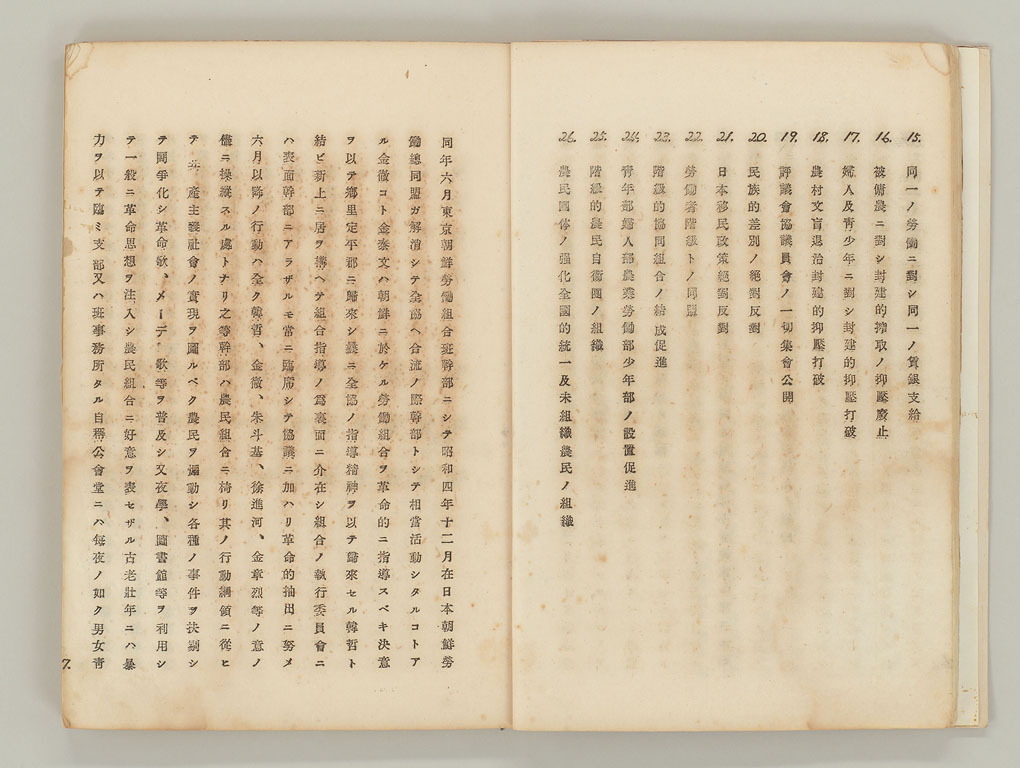 15. 同一ノ勞働ニ對シ同一ノ賃銀支給
16. 被傭農ニ對シ封建的搾取ノ抑壓廢止
17. 婦人及靑少年ニ對シ封建的抑壓打破
18. 農村文盲退治封建的抑壓打破
19. 評議會協議員會ノ一切集會公開
20. 民族的差別ノ絕對反對
21. 日本移民政策絕對反對
22. 勞働者階級トノ同盟
23. 階級的協同組合ノ結成促進
24. 靑年部婦人部農業勞働部少年部ノ設置促進
25. 階級的農民自衞團ノ組織
26. 農民團体ノ强化全國的統一及未組織農民ノ組織
同年六月東京朝鮮勞働組合班幹部ニシテ昭和四年十二月在日本朝鮮勞
働總同盟ガ解消シテ全協ヘ合流ノ際幹部トシテ相當活動シタルコトア
ル金徹コト金泰文ハ朝鮮ニ於ケル勞働組合ヲ革命的ニ指導スベキ決意
ヲ以テ鄕里定平郡ニ歸來シ曩ニ全協ノ指導精神ヲ以テ歸來セル韓哲ト
結ビ新上ニ居ヲ構ヘテ組合指導ノ爲裏面ニ介在シ組合ノ執行委員會ニ
ハ表面幹部ニアラザルモ常ニ臨席シテ協議ニ加ハリ革命的抽出ニ努メ
六月以降ノ行動ハ全ク韓哲、金徹、朱斗基、徐進河、金章烈等ノ意ノ
儘ニ操縱スル處トナリ之等幹部ハ農民組合ニ椅リ其ノ行動綱領ニ從ヒ
テ共產主義社會ノ實現ヲ圖ルベク農民ヲ煽動シ各種ノ事件ヲ抉剔シ
テ鬪爭化シ革命歌、メーデー歌等ヲ普及シ又夜學、圖書館等ヲ利用シ
テ一般ニ革命思想ヲ注入シ農民組合ニ好意ヲ表セザル古老壯年ニハ暴
力ヲ以テ臨ミ支部又ハ班事務所タル自稱公會堂ニハ每夜ノ如ク男女靑
7.